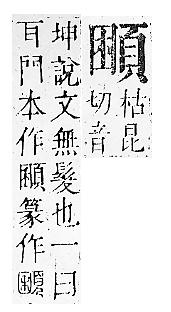 枯昆
切音
坤說文無髮也一曰
耳門本作篆作